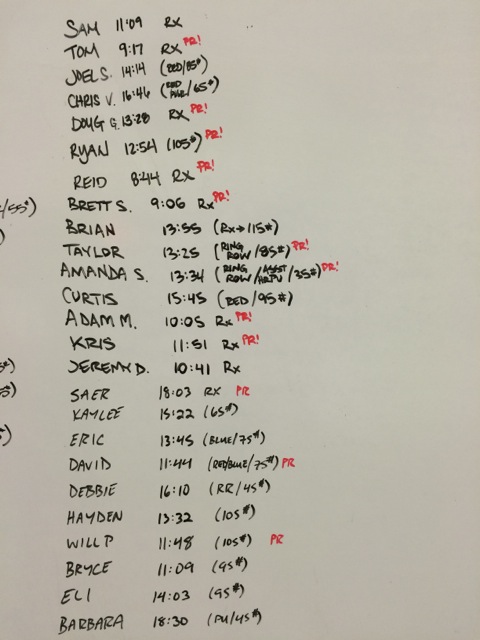 SAM 11:09 Rx
TOM 9:17 Rx PR!
JOEL S. 14:14 (RED/85#)
CHRIS V. 16:46 (RED /65#)
DOUG G. 13:28 Rx PR!
RYAN 12:54 (105#) PR!
REID 8:44 Rx PR!
BRETT S. 9:06 Rx PR!
/55#)
BRIAN 13:55 (Rx→115#)
TAYLOR 13:25 (RING ROW/85#) PR!
AMANDA S. 13:34 (RING ROW/ASST HRPU/35#) PR!
CURTIS 15:45 (RED/95#)
ADAM M. 10:05 Rx PR!
KRIS 11:51 Rx PR!
JEREMY D. 10:41 Rx
SAER 18:03 RX PR
KAYLEE 15:22 (65#)
ERIC 13:45 (BLUE/75#)
DAVID 11:44 (RED/BLUE/75#) PR
DEBBIE 16:10 (RR/45#)
HAYDEN 13:32 (105#)
WILL P 11:48 (105#) PR
BRYCE 11:09 (95#)
ELI 14:03 (95#)
BARBARA 18:30 (PU/45#)